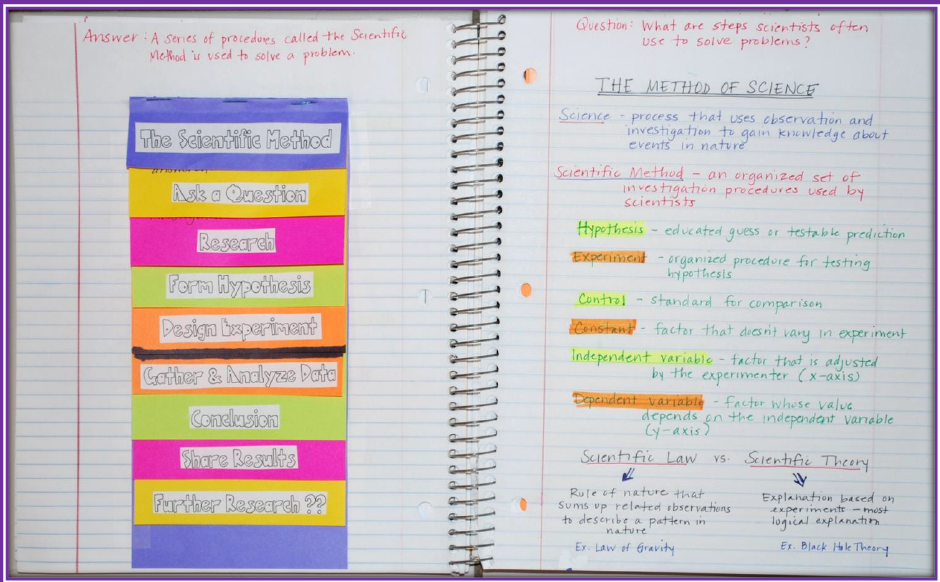 Answer: A series of procedures called the Scientific
Method is used to solve a problem.
The Scientific Method
Ask a Question
Research
Form Hypothesis
Design Experiment
Gather & Analyze Data
Conclusion
Share Results
Further Research ??
Question: What are steps scientists often
use to solve problems?
THE METHOD OF SCIENCE
Science - process that uses observation and
investigation to gain knowledge about
events in nature
Scientific Method - an organized set of
investigation procedures used by
scientists
Hypothesis - educated guess or testable prediction
Experiment - organized procedure for testing
hypothesis
Control - standard for comparison
Constant - factor that doesn't vary in experiment
Independent variable - factor that is adjusted
by the experimenter (x-axis)
Dependent variable - factor whose value
depends on the independent variable
(y-axis)
Scientific Law vs. Scientific Theory
Rule of nature that
sums up related observations
to describe a pattern in
nature
Ex. Law of Gravity
Explanation based on
experiments - most
logical explanation
Ex. Black Hole Theory